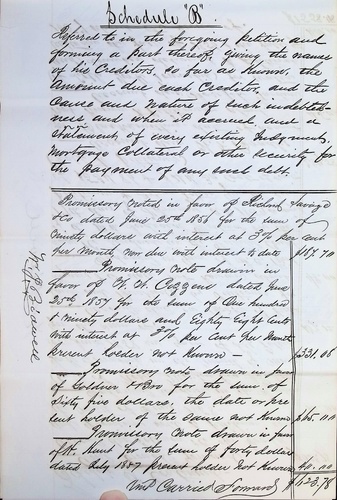 Schedule "B".
Referred to in the foregoing petition and
forming a part thereof, giving the names
of his Creditors, so far as Known, the
Amount due each Creditor, and the
Cause and Nature of such indebted-
ness and when it accrued and a
statement of every existing Judgment,
Mortgage Collateral or other Security for
the payment of any such debt.
Promissory noted in favor of Richard Savage
& Co dated June 25th 1856 for the sum of
Ninety dollars with interest at 3% per cent
per Month now due with interest to date $187.70
Promissory note drawn in
favor of W. Cozzens dated June
25th 1857 for the sum of One hundred
& Ninety dollars and Eighty Eight Cents
with interest at 3% per cent per Month
present holder not Known — $331.06
Promissory note drawn in favor
of & Bro for the sum of
Sixty five dollars, the date or pre
sent holder of the same not Known $65.00
Promissory Note drawn in favor
of H. Hunt for the sum of Forty dollars
dated July 1857 present holder not Known 40.00
Carried Forward $623.76